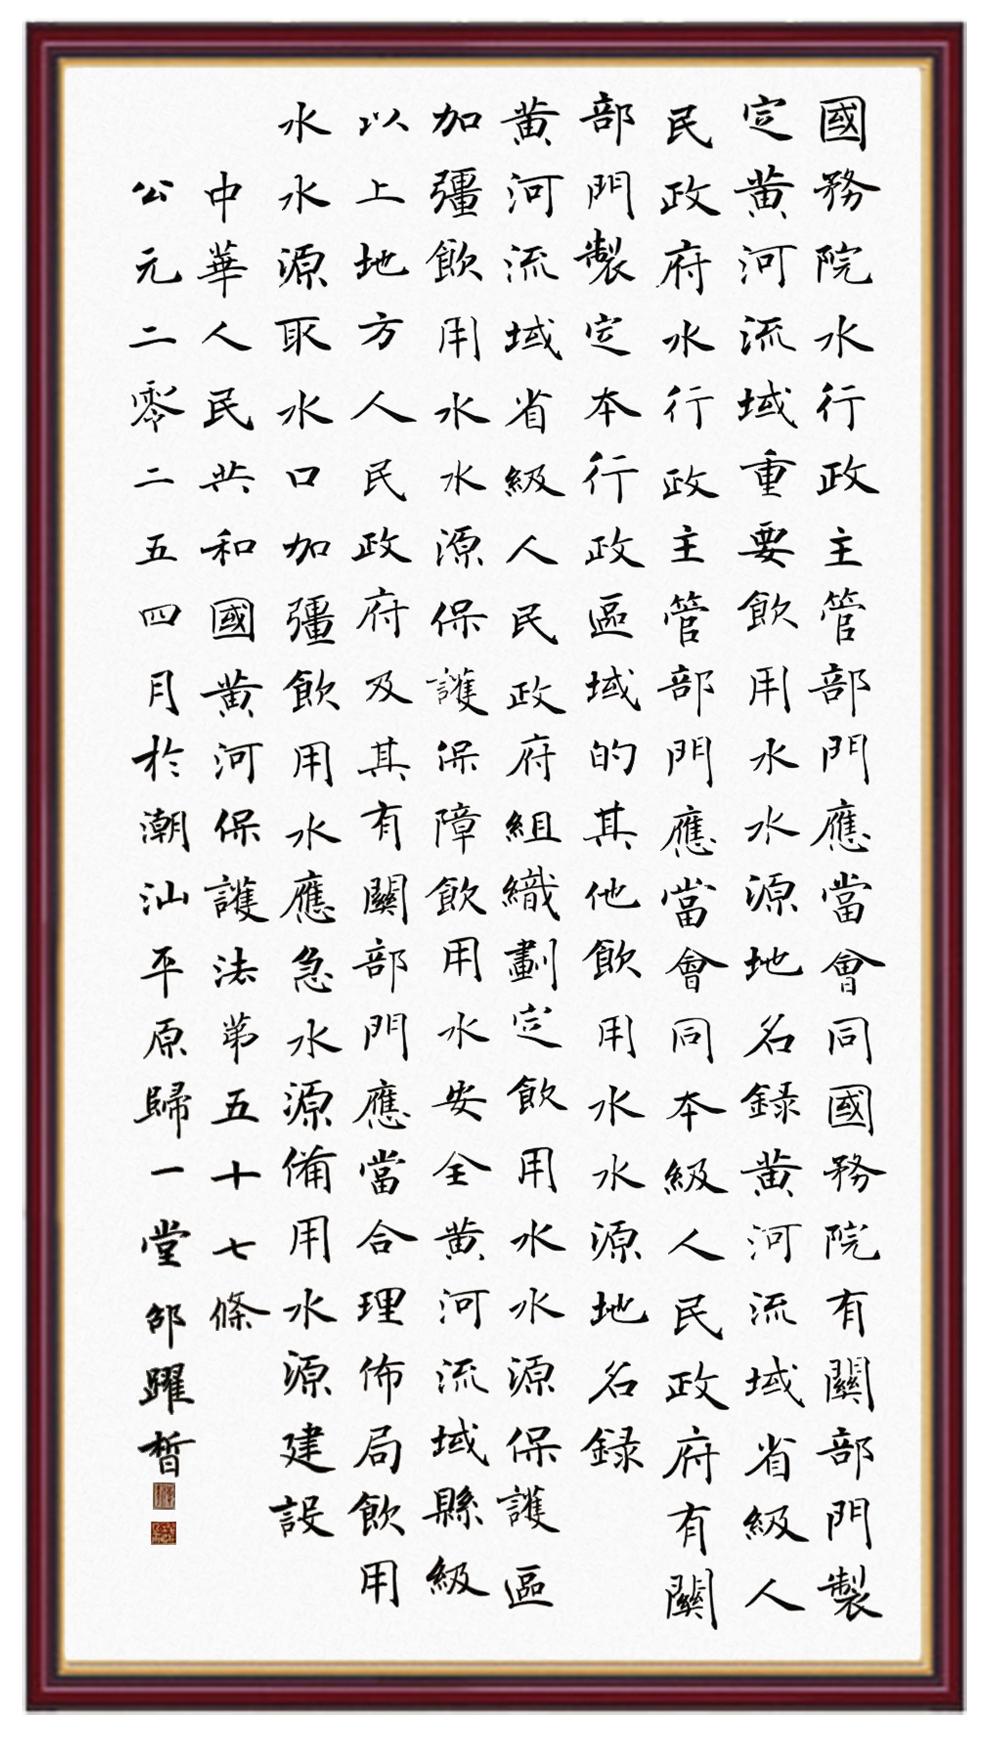 國務院水行政主管部門應當會同國務院有關部門製
定黃河流域重要飲用水水源地名録黃河流域省級人
民政府水行政主管部門應當會同本級人民政府有關
部門製定本行政區域的其他飲用水水源地名録
黃河流域省級人民政府組織劃定飲用水水源保護區
加彊飲用水水源保護保障飲用水安全黃河流域縣級
以上地方人民政府及其有關部門應當合理佈局飲用
水水源取水口加彊飲用水應急水源備用水源建設
中華人民共和國黃河保護法第五十七條
公元二零二五四月於潮汕平原歸一堂邰躍晳